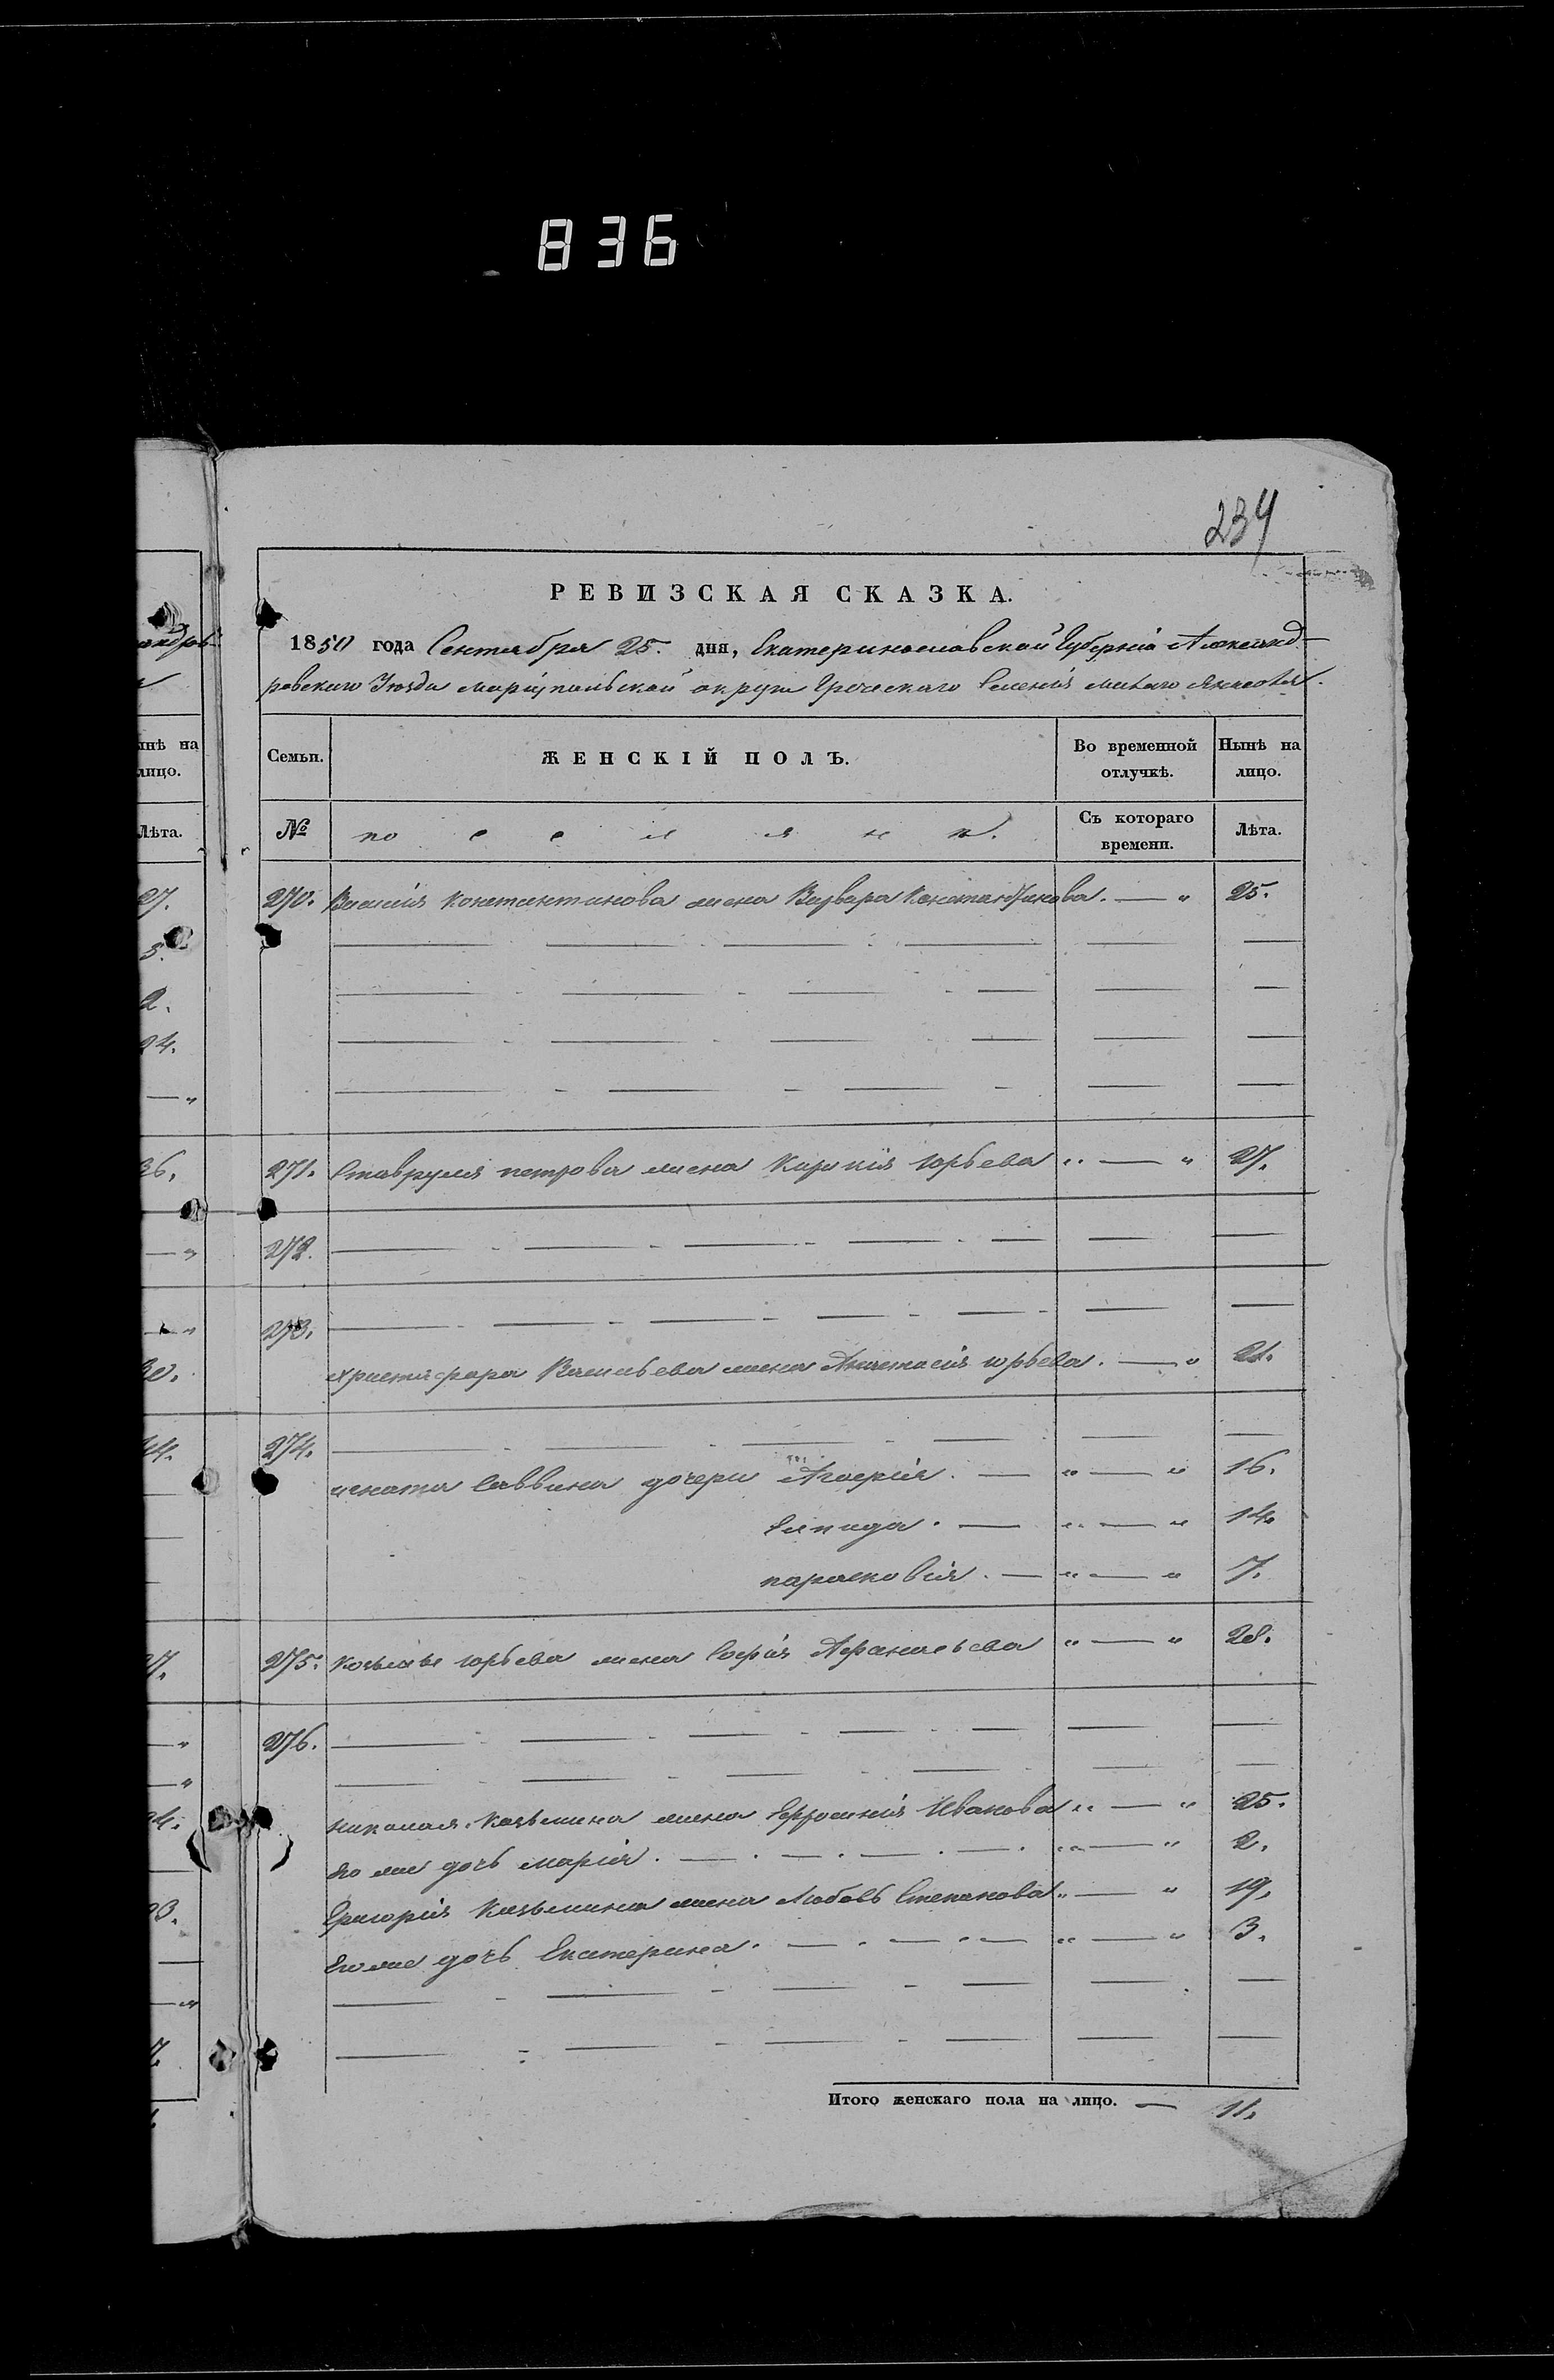 836
234
РЕВИЗСКАЯ СКАЗКА.
1850 года Сентября 25. дня, Екатеринославской Губерніи Александ-
ровскаго Уезда Маріупольской округи Греческаго Селенія малаго Янисоля.
Семьи. ЖЕНСКІЙ ПОЛЪ. Во временной отлучкѣ. Нынѣ на лицо.
№ поселянъ. Съ котораго времени. Лѣта.
270. Василія Константинова жена Варвара Константинова. — " 25.
271. Ставруля петрова жена Кирикія юрьева " — " 27.
272.
273.
христифора Васильева жена Анастасія юрьева. — " 21.
274.
игната Саввина дочери — " — " 16.
Елпида. — " — " 14.
парасковія. — " — " 7.
275. Козьмы юрьева жена Софія Афанасьева " — " 28.
276.
николая Козьмина жена Ефросинія Иванова " — " 25.
Его же дочь марія. " — " 2.
Григорія Козьмина жена Любовь Степанова " — " 19.
Его же дочь Екатерина. " — " 3.
Итого женскаго пола на лицо. — 11.